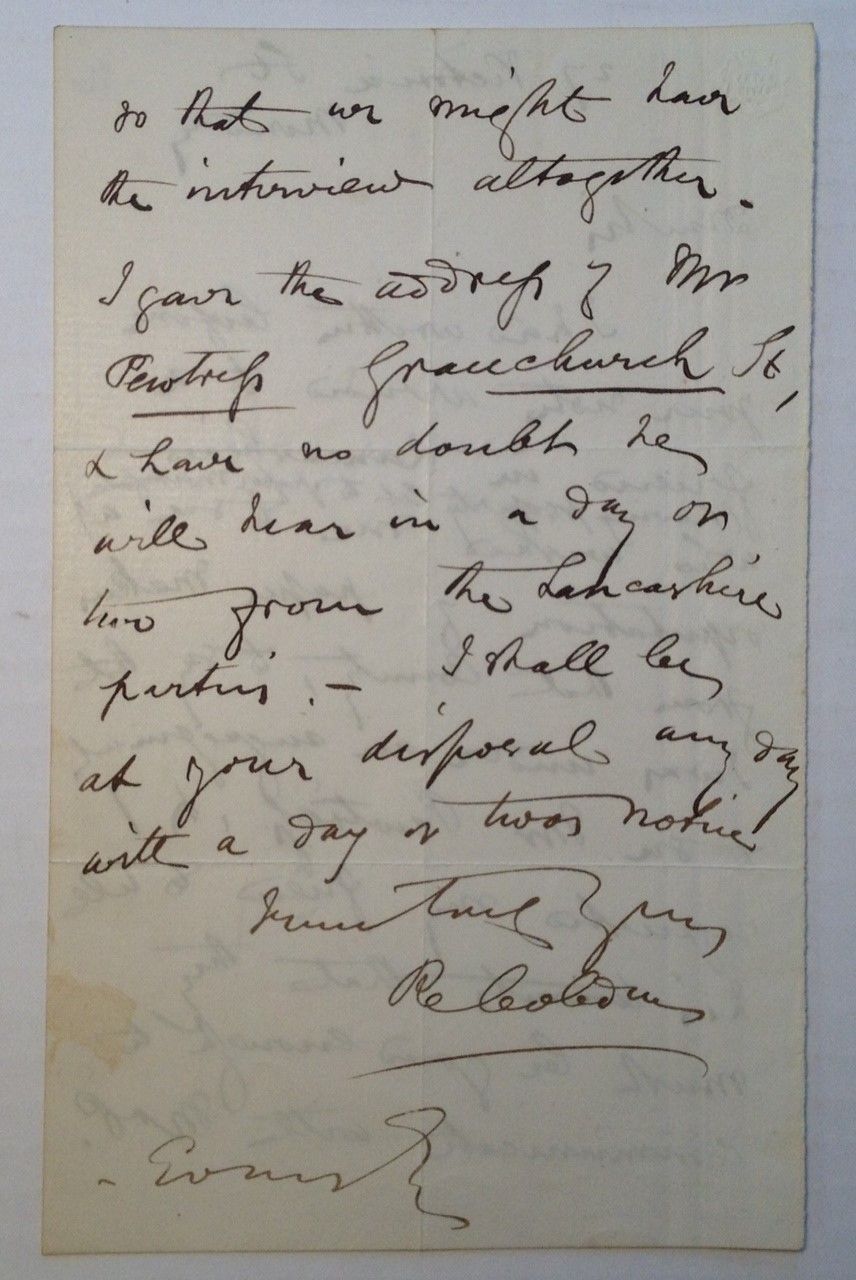 so that we might have
the interview altogether.
I gave the address of Mr
Pewtress Gracechurch St,
& have no doubt he
will hear in a day or
two from the Lancashire
parties. – I shall be
at your disposal any day
with a day or twos notice
truly yours
R Cobden